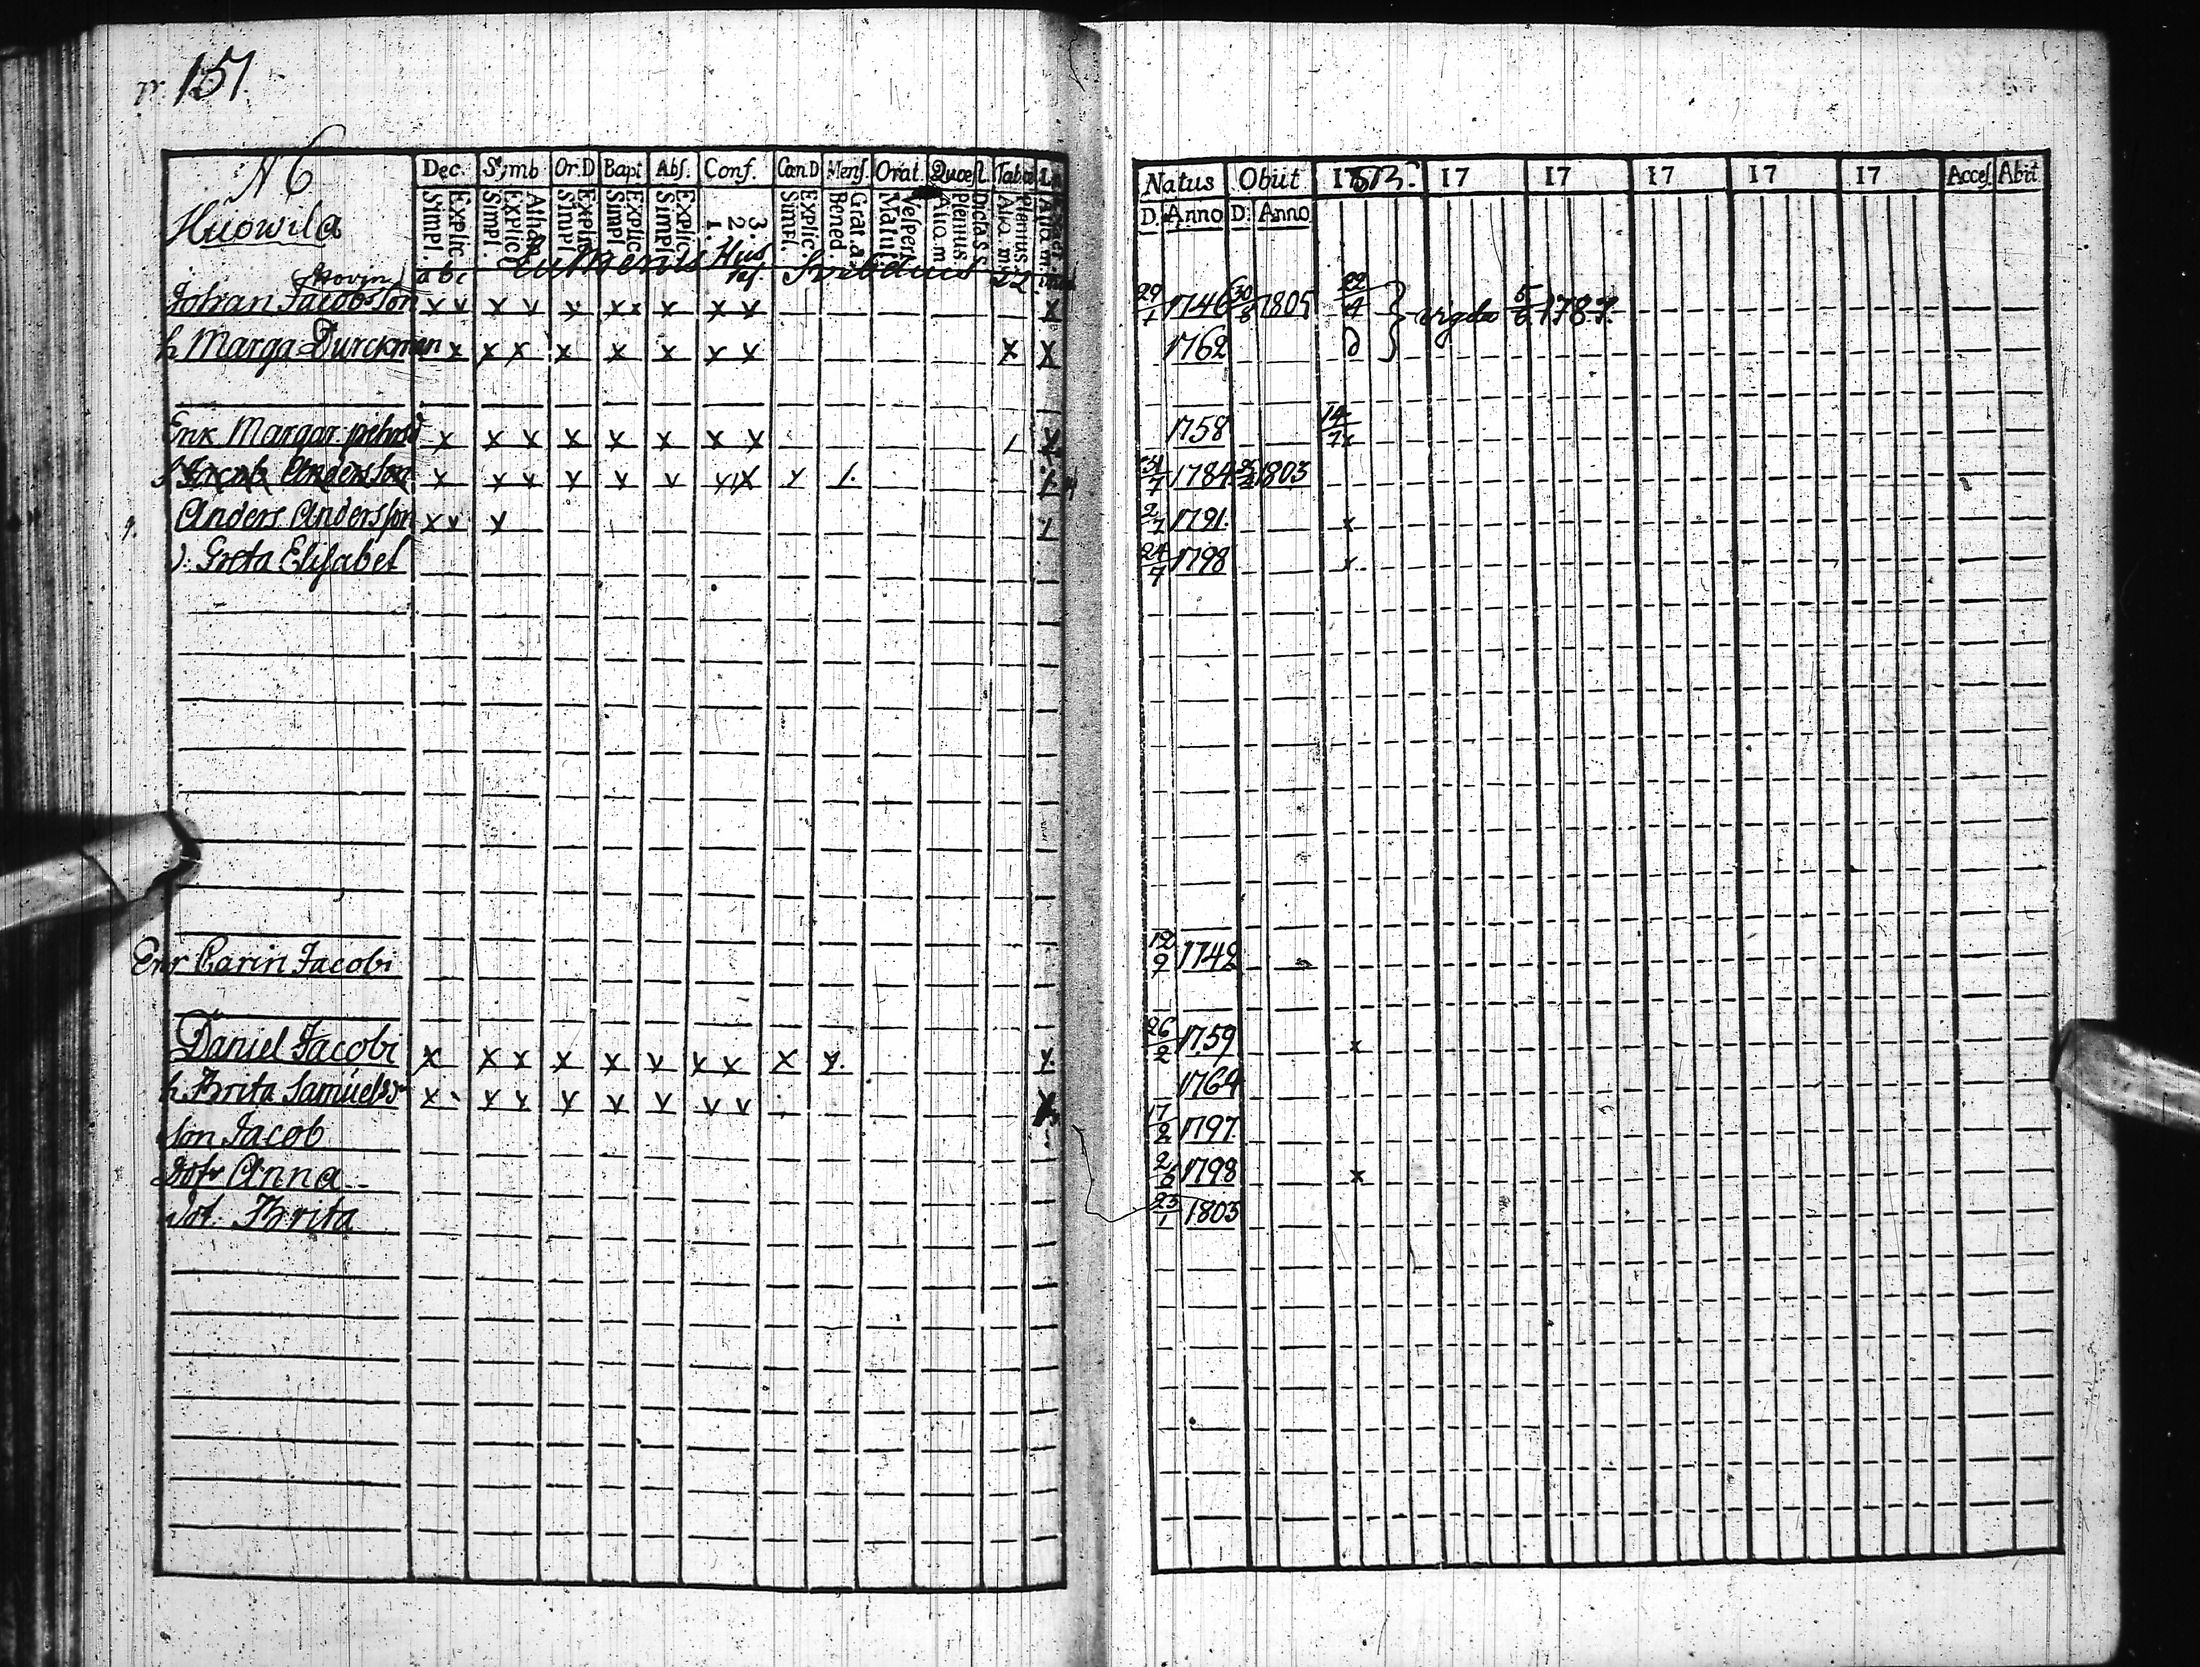 151.
N 6
Huowila
Dec. Symb Or.D Bapt Abs. Conf. Cœn.D Mens. Orat. Quœst. Tabœ
Explic. Simpl. Athan. Explic. Simpl. Explic. Simpl. Explic. Simpl. Explic. Simpl. 3. 2. 1. Explic. Simpl. Grat. a. Bened. Vespert. Matut. Dicta S. S. Plenius. Alio. m. Plenius. Alio. m.
abc Hus
Johan Jacobsson
h Marga Durckman
Enk Margar
Jacob Andersson
Anders Andersson
Greta Elisabet
Enk Carin Jacobi
Daniel Jacobi
h Brita Samuels dr
son Jacob
dotr Anna
dot. Brita
Natus Obiit 17 17 17 17 17 17 Acces. Abiit
D. Anno D. Anno
29/1 1746 30/3 1805 22/4 vigda 5/6 1787.
1762
1758 14/7
31/7 1784 1803
2/7 1791.
24/7 1798
12/9 1742
26/2 1759
1764
17/2 1797
2/6 1798
23/1 1803